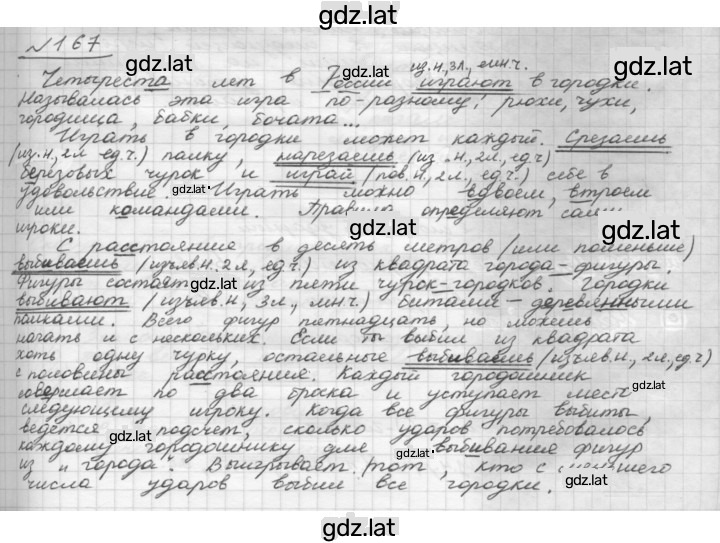 gdz.lat
№167
gdz.lat
gdz.lat
из.н., 3л., мн.ч.
Четыреста лет в России играют в городки.
gdz.lat
Называлась эта игра по-разному: рюхи, чухи,
городища, бабки, бочата...
Играть в городки может каждый. Срезаешь
(из.н., 2л. ед.ч.) палку, нарезаешь (из.н., 2л., ед.ч)
берёзовых чурок и играй (пов.н., 2л., ед.ч.) себе в
удовольствие. gdz.lat Играть можно вдвоем, втроем
или командами. Правила определяют сами
игроки.
С расстояние в десять метров (или поменьше)
выбиваешь (изъяв.н. 2л., ед.ч.) из квадрата города-фигуры.
Фигуры состоят из пяти чурок-городков. Городки
gdz.lat
выбивают (изъяв.н., 3л., мн.ч.) битами - деревянными
палками. Всего фигур пятнадцать, но можешь
начать и с нескольких. Если ты выбил из квадрата
хоть одну чурку, остальные выбиваешь (изъяв.н., 2л., ед.ч)
с половины расстояние. Каждый городошник
совершает по два броска и уступает место
gdz.lat
следующему игроку. Когда все фигуры выбиты,
ведётся подсчет, сколько ударов потребовалось
gdz.lat
каждому городошнику для выбивания фигур
из "города". Выигрывает тот, кто с
gdz.lat
числа ударов выбил все городки.
gdz.lat
gdz.lat